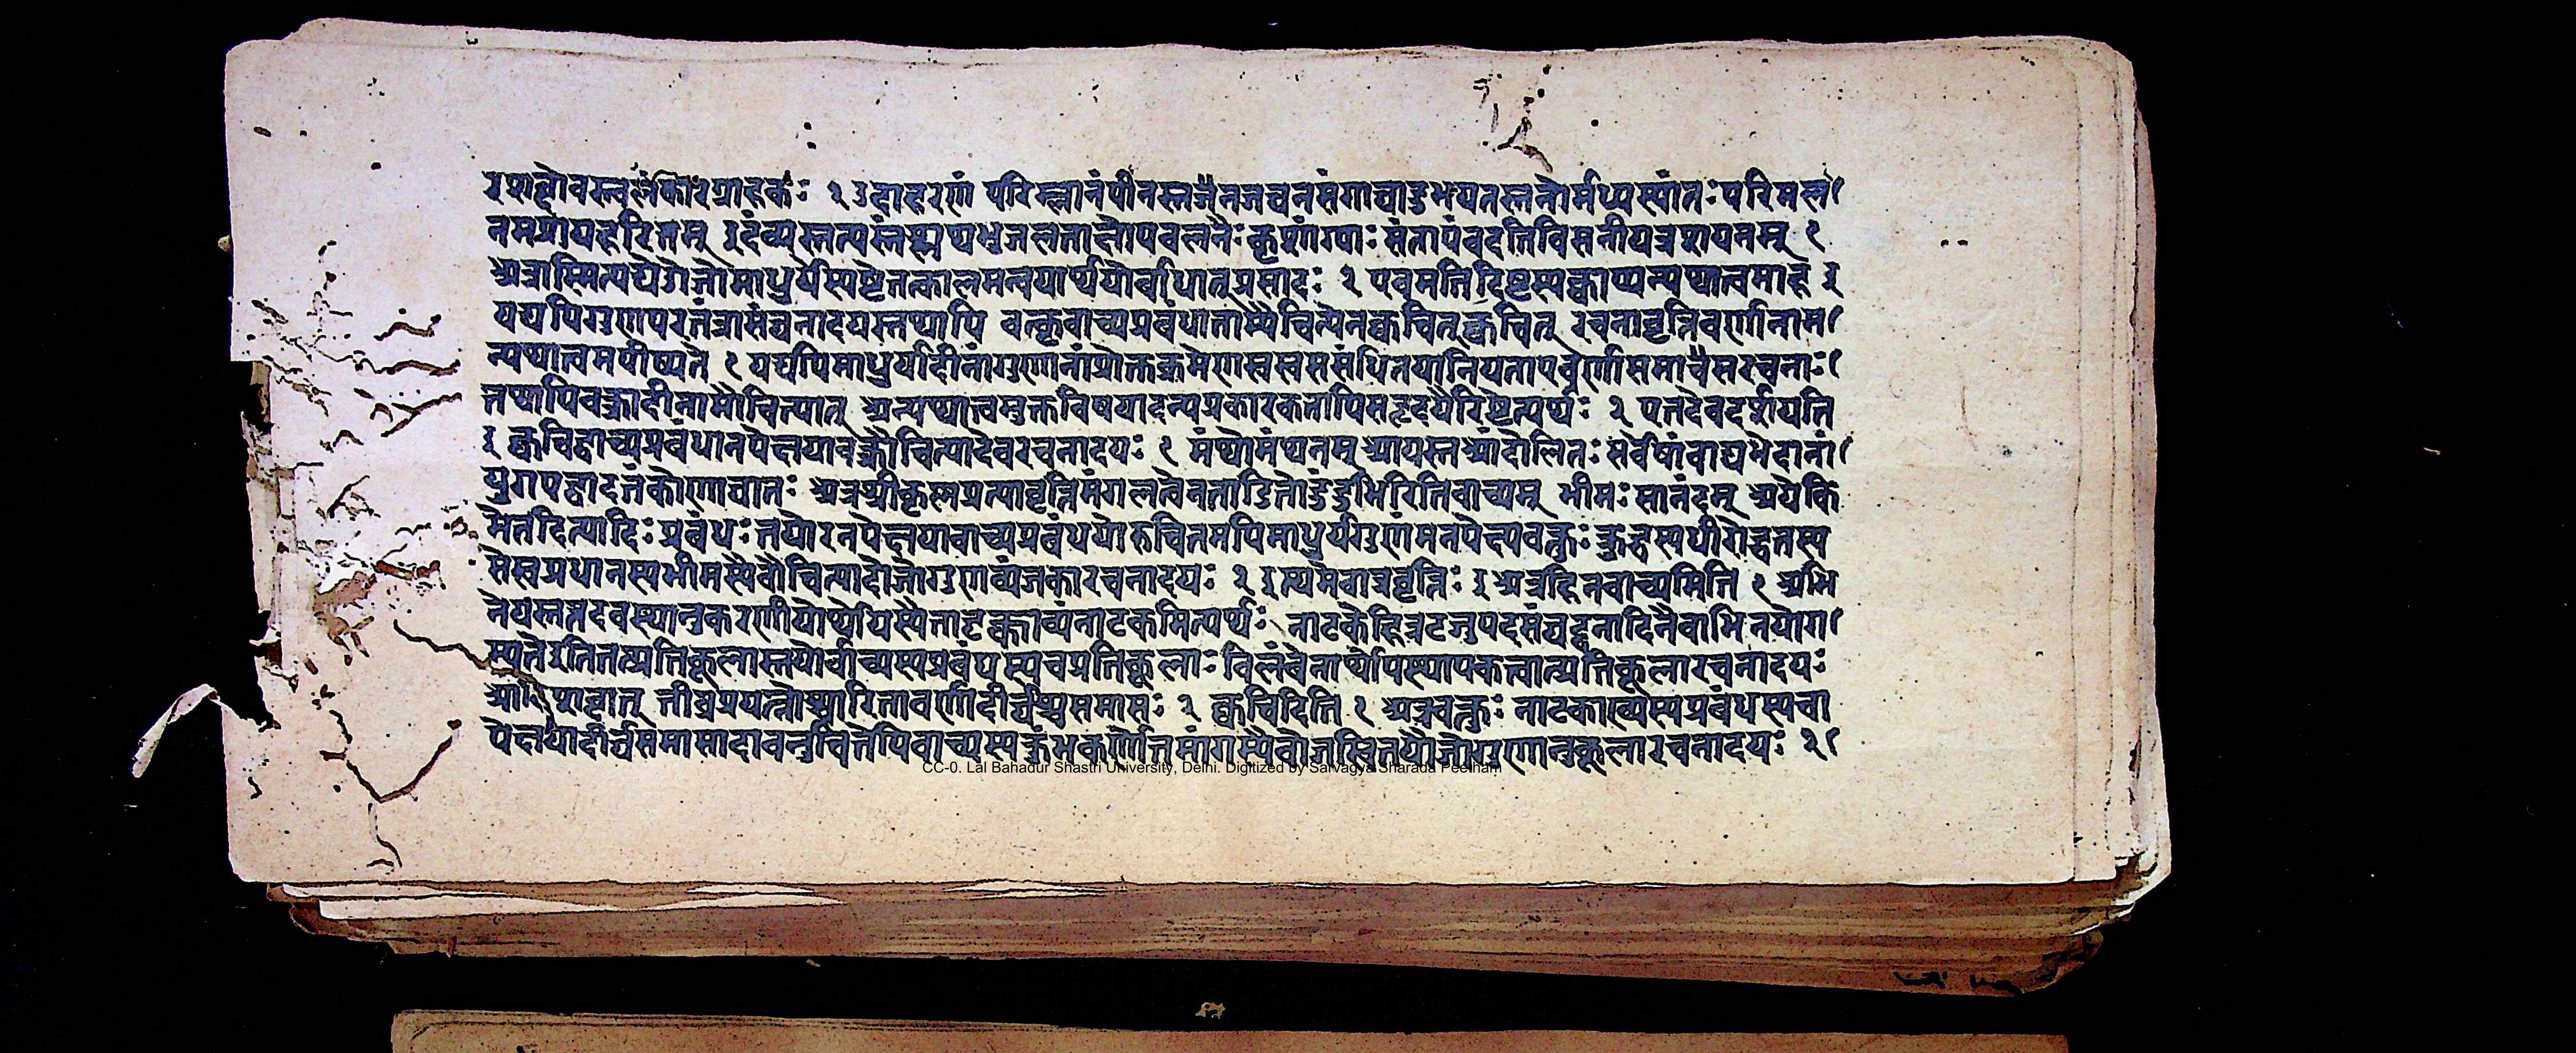 रप्राप्तोवस्त्वलंकारग्राहकः २ उदाहरणं परिम्लानंपीनस्तनजघनसंगाद्युभयतस्तनोर्मध्यस्यांतःपरिमल
नमप्राप्यहरितम् इदंव्यस्तन्यस्तंश्लथभुजलताक्षेपवलनैः कृशांग्याः संतापंवदतिविसनीपत्रशयनम् १
अत्रास्मित्यद्ये माधुर्यस्य प्रसादः २ एवमतिदिष्टस्यक्वाप्यन्यथात्वमाह इ
यद्यपिगुणपरतंत्रासंघटनादयस्तथापि वक्तृवाच्यप्रबंधानामौचित्येनक्वचित्क्वचित् रचनावृत्तिवर्णानाम
न्यथात्वमपीष्यते १ यद्यपिमाधुर्यादीनांगुणानांप्रोक्तक्रमेण वर्णासमासरचनाः
तथापिवक्त्रादीनामौचित्यात् अन्यथात्वमुक्तविषयादन्यप्रकारकतापिसहृदयैरिष्टेत्यर्थः २ एतदेवदर्शयति
इ क्वचिद्वाच्यप्रबंधानपेक्षयावक्त्रौचित्यादेवरचनादयः १ मंथोमंथनम् आयस्तआंदोलितः सर्वेषांवाद्यभेदानां
युगपद्वादनंकोणाघातः अत्रश्रीकृष्णप्रत्यावृत्तिमंगलत्वेनताडितोदुंदुभिरितिवाच्यम् भीमः सानंदम् अयेकि
मेतदित्यादिः प्रबंधः तयोरनपेक्षयावाच्यप्रबंधयोरुचितमपिमाधुर्यगुणमनपेक्ष्यवक्तुः क्रुद्धस्यधीरोद्धतस्य
प्रधानस्यभीमस्यैवौचित्यादोजोगुणव्यंजकारचनादयः २ इ अत्रवृत्तिः इ अत्रहिनवाच्यमिति १ अभि
नेयस्तत्तदवस्थानुकरणीयोर्थोयस्यैतादृक्काव्यंनाटकमित्यर्थः नाटकेहि नादिनैवाभिनयोग
म्यतेइतितत्प्रतिकूलास्तयोर्वाच्यस्यप्रबंधस्यचप्रतिकूलाः विलंबेनार्थोपस्थापकत्वात्प्रतिकूलारचनादयः
तीव्रप्रयत्नोच्चारितावर्णादीर्घश्चसमासः २ क्वचिदिति १ अत्रवक्तुः नाटकाख्यस्यप्रबंधस्यचा
पेक्षयादीर्घसमासादावनुचितेपिवाच्यस्यकुंभकर्णोत्तमांगस्यैवौजस्वितयौजोगुणानुकूलारचनादयः २
CC-0. Lal Bahadur Shastri University, Delhi. Digitized by Sarvagya Sharada Peetham